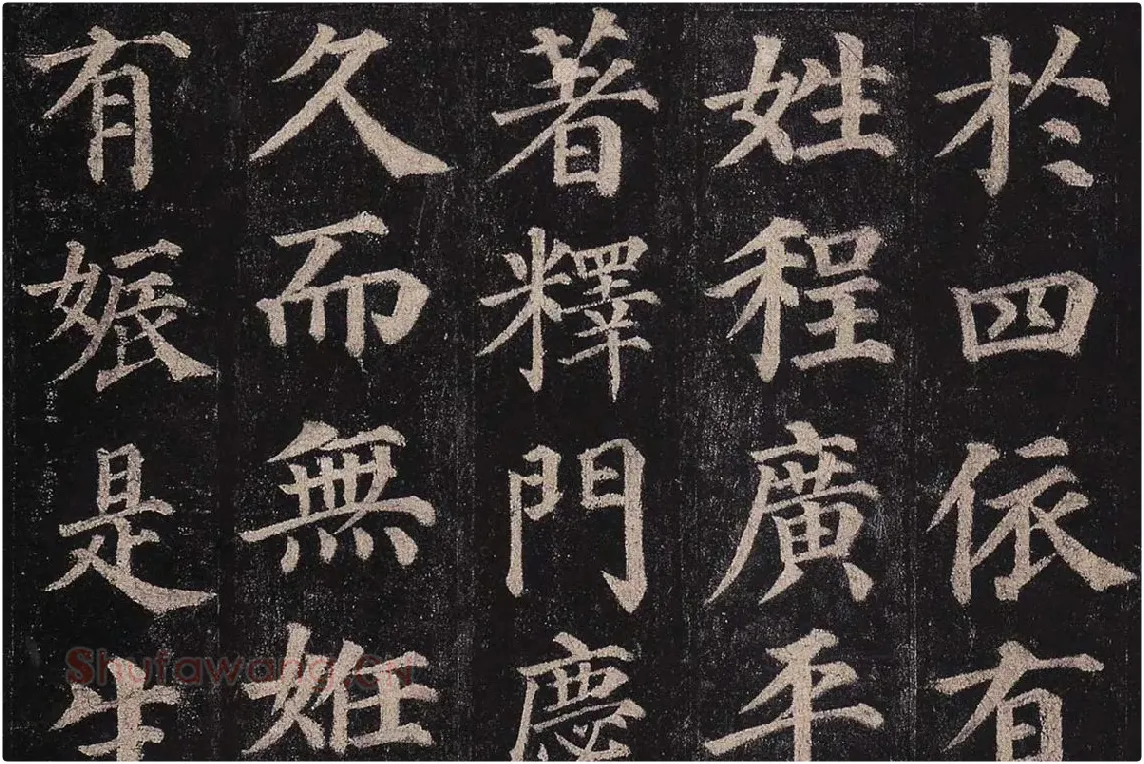 於四依有
姓程廣平
著釋門慶
久而無姙
有娠是生
Shufawang.cn